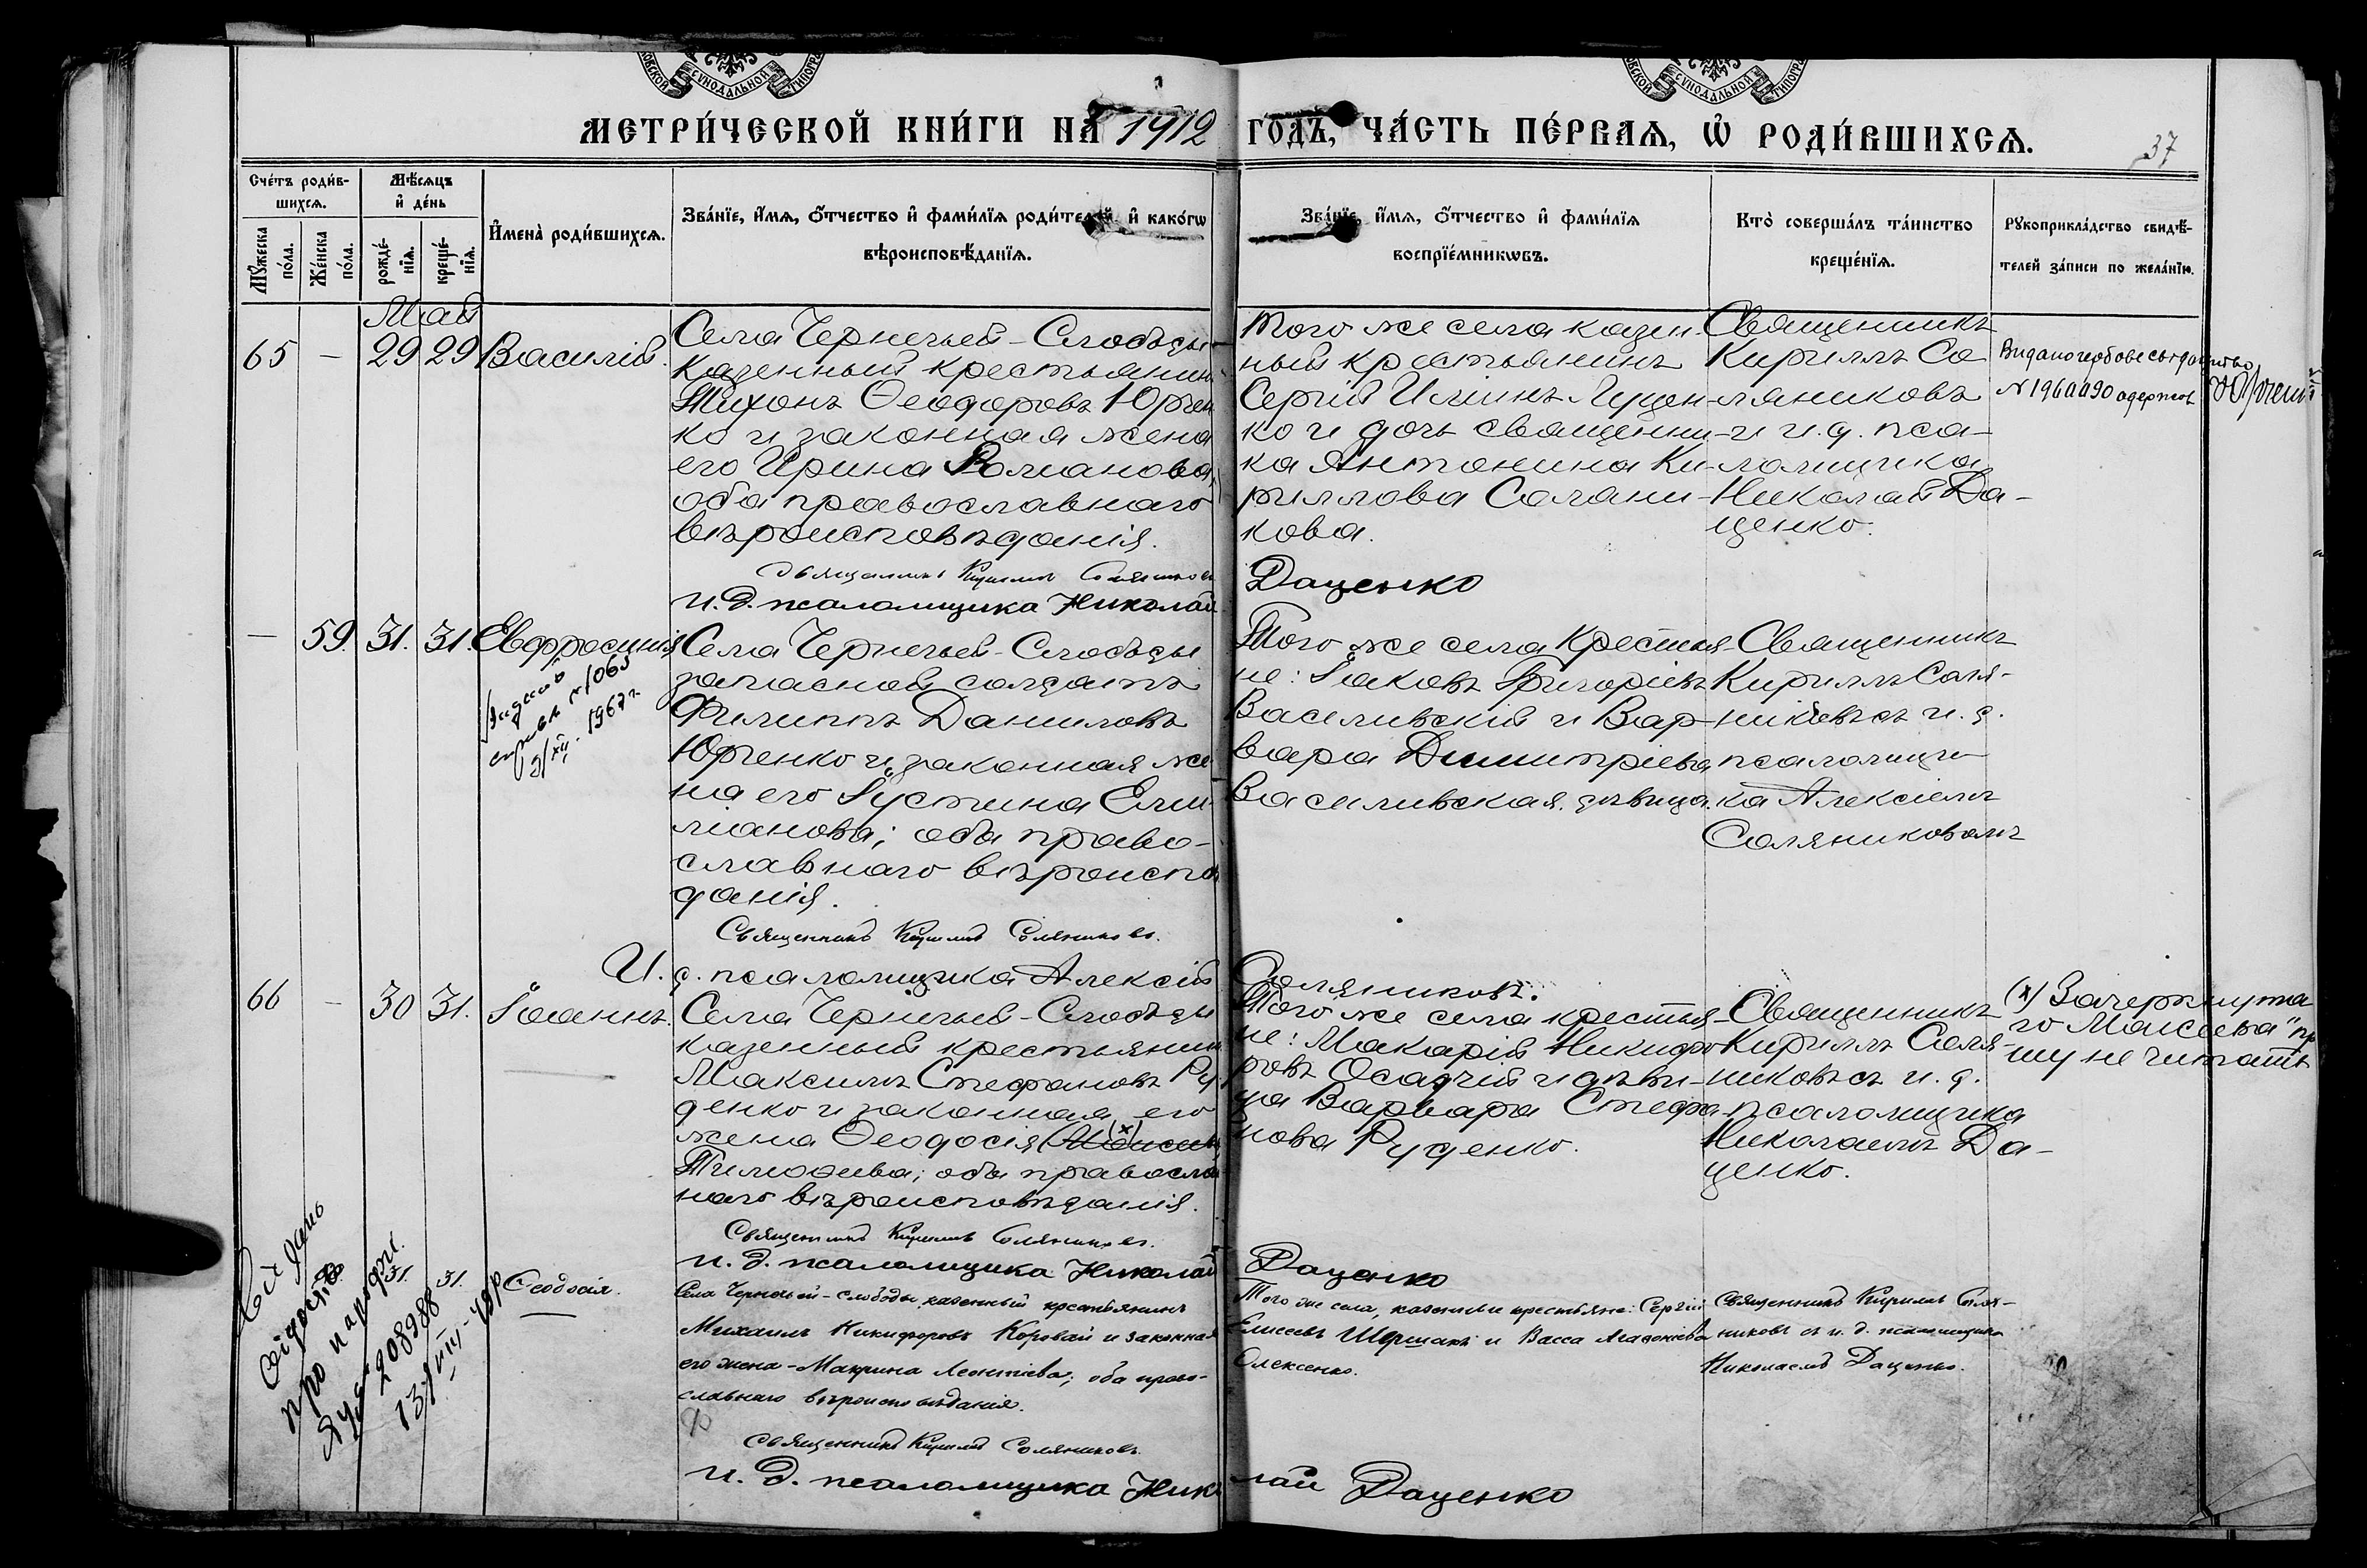 МЕТРИ́ЧЕСКОЙ КНИ́ГИ НА 1912 ГОДЪ, ЧА́СТЬ ПЕ́РВАЯ, Ѡ РОДИ́ВШИХСЯ.
37
Сче́тъ роди́в-
шихся.
Му́жеска
по́ла.
Же́нска
по́ла.
Мѣ́сяцъ
и де́нь
рожде́-
нїя.
креще́-
нїя.
Имена̀ роди́вшихся.
Зва́нїе, и́мя, о́тчество и фами́лїя роди́телей и како́гѡ
вѣроисповѣ́данїя.
Зва́нїе, и́мя, о́тчество и фами́лїя
воспрїе́мникѡвъ.
Кто̀ соверша́лъ та́инство
креще́нїя.
Рукоприкла́дство свидѣ́-
телей за́писи по жела́нїю.
Май
65 — 29 29 Василій.
Села Чернечьей-Слободы
казенный крестьянинъ
Тихонъ Ѳеодоровъ Юрчен
ко и законная жена
его Ирина Романова,
оба православнаго
вѣроисповѣданія.
Священникъ Кириллъ Соляниковъ
И. д. псаломщика Николай Даценко
Того же села казен
ный крестьянинъ
Сергій Илiинъ Луцен-
ко и дочь священни-
ка Антонина Ки-
риллова Соляни-
кова.
Священникъ
Кириллъ Со
ляниковъ
и и. д. пса-
ломщика
Николай Да-
ценко.
№ 1960490 одержав
— 59. 31. 31. Евфросинія
1967 г.
Села Чернечьей-Слободы
запасной солдатъ
Филиппъ Даниловъ
Юрченко и законная же
на его Іустина Еми-
лианова; оба право-
славнаго вѣроиспо
данія.
Священникъ Кириллъ Соляниковъ.
И. д. псаломщика Алексій Соляниковъ.
Того же села крестья-
не: Іаковъ Григоріевъ
Василивскій и Вар-
вара Димитріева
Василивская, дѣвица.
Священникъ
Кириллъ Соля-
никовъ съ и. д.
псаломщи
ка Алексіемъ
Соляниковомъ
66 — 30 31. Іоаннъ.
Села Чернечьей-Слободы
казенный крестьянинъ
Максимъ Стефановъ Ру
денко и законная его
жена Ѳеодосія (х)
Тимоѳеева; оба правосла
наго вѣроисповѣданія.
Священникъ Кириллъ Соляниковъ.
и. д. псаломщика Николай Даценко
Того же села крестья-
не: Макарій Никифо
ровъ Осадчій и дѣви-
ца Варвара Стефа-
нова Руденко.
Священникъ
Кириллъ Соля-
никовъ съ и. д.
псаломщика
Николаемъ Да-
ценко.
(х) Зачеркнута
го "Моисеева" пр
шу не читать
31. 31. Ѳеодосія.
про народж.
Села Чернечьей-слободы, казенный крестьянинъ
Михаилъ Никифоровъ Коровай и законная
его жена - Макрина Леонтіева; оба право-
славнаго вѣроисповѣданія.
Священникъ Кириллъ Соляниковъ.
и. д. псаломщика Николай Даценко
Того же села, казенные крестьяне: Сергій
Елисеевъ Шершакъ и Васса Агаѳоніева
Олексенко.
Священникъ Кириллъ Соля-
никовъ съ и. д. псаломщика
Николаемъ Даценко.